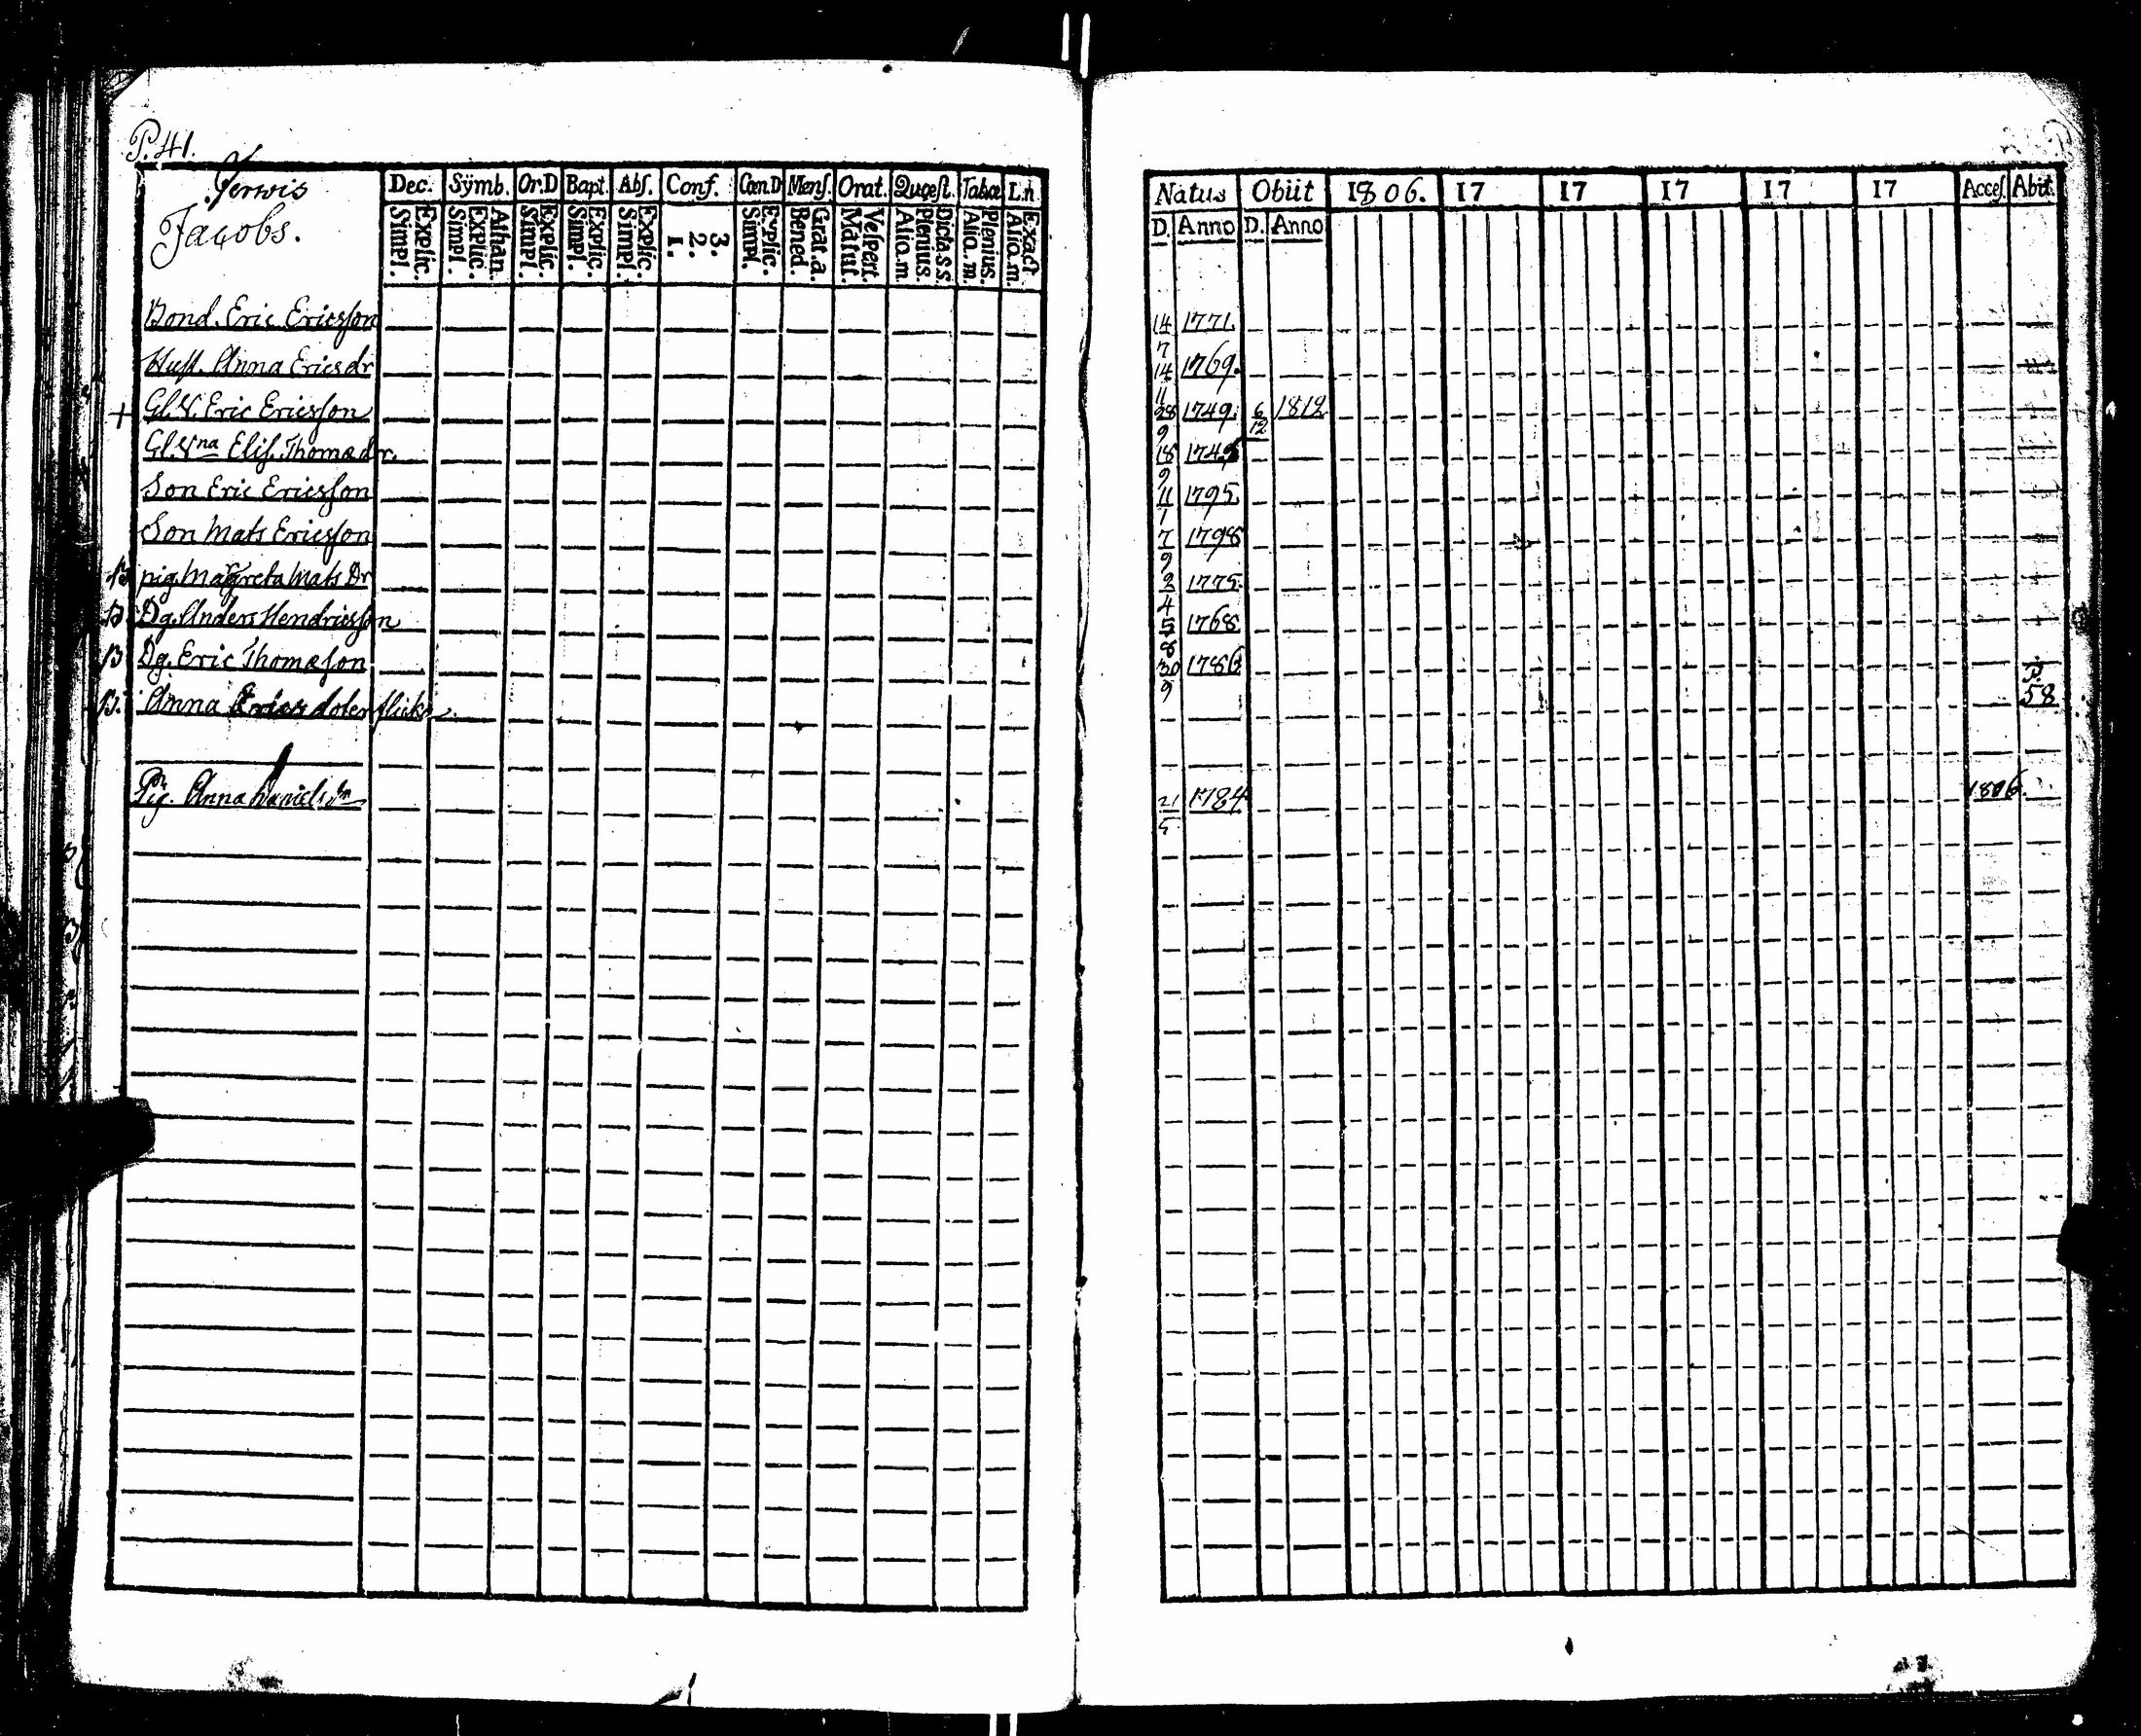 P. 41.
Jerwis
Jacobs.
Dec. Sÿmb. Or.D Bapt. Abſ. Conf. Cœn.D Menſ. Orat. Quæſt. Tabæ L.n
Simpl. Explic. Simpl. Explic. Athan. Simpl. Explic. Simpl. Explic. Simpl. Explic. 1. 2. 3. Simpl. Explic. Bened. Grat.a. Matut. Veſpert. Alio.m. Plenius. Dicta.s.s. Alio.m. Plenius. Alio.m. Exact
Natus Obiit 1806. 17 17 17 17 17 Acceſ. Abit.
D. Anno D. Anno
Bond. Eric Ericsſon 14/7 1771
Hust. Anna Ericsdr 14/11 1769.
+ Gl. V. Eric Ericsſon 28/9 1749. 6/12 1812
Gl. Vna Eliſ. Thomædr. 18/9
Son Eric Ericsſon 11/1 1795
Son Mats Ericsſon 7/9 1798
pig. Margreta Mats Dr 2/4 1775.
Dg. Anders Hendricsſon 5/8 1768
B Dg. Eric Thomæſon 30/9 1786
Anna Erics doter flicka P. 58
Pig. Anna Daniels dr 21/5 1784 1806.